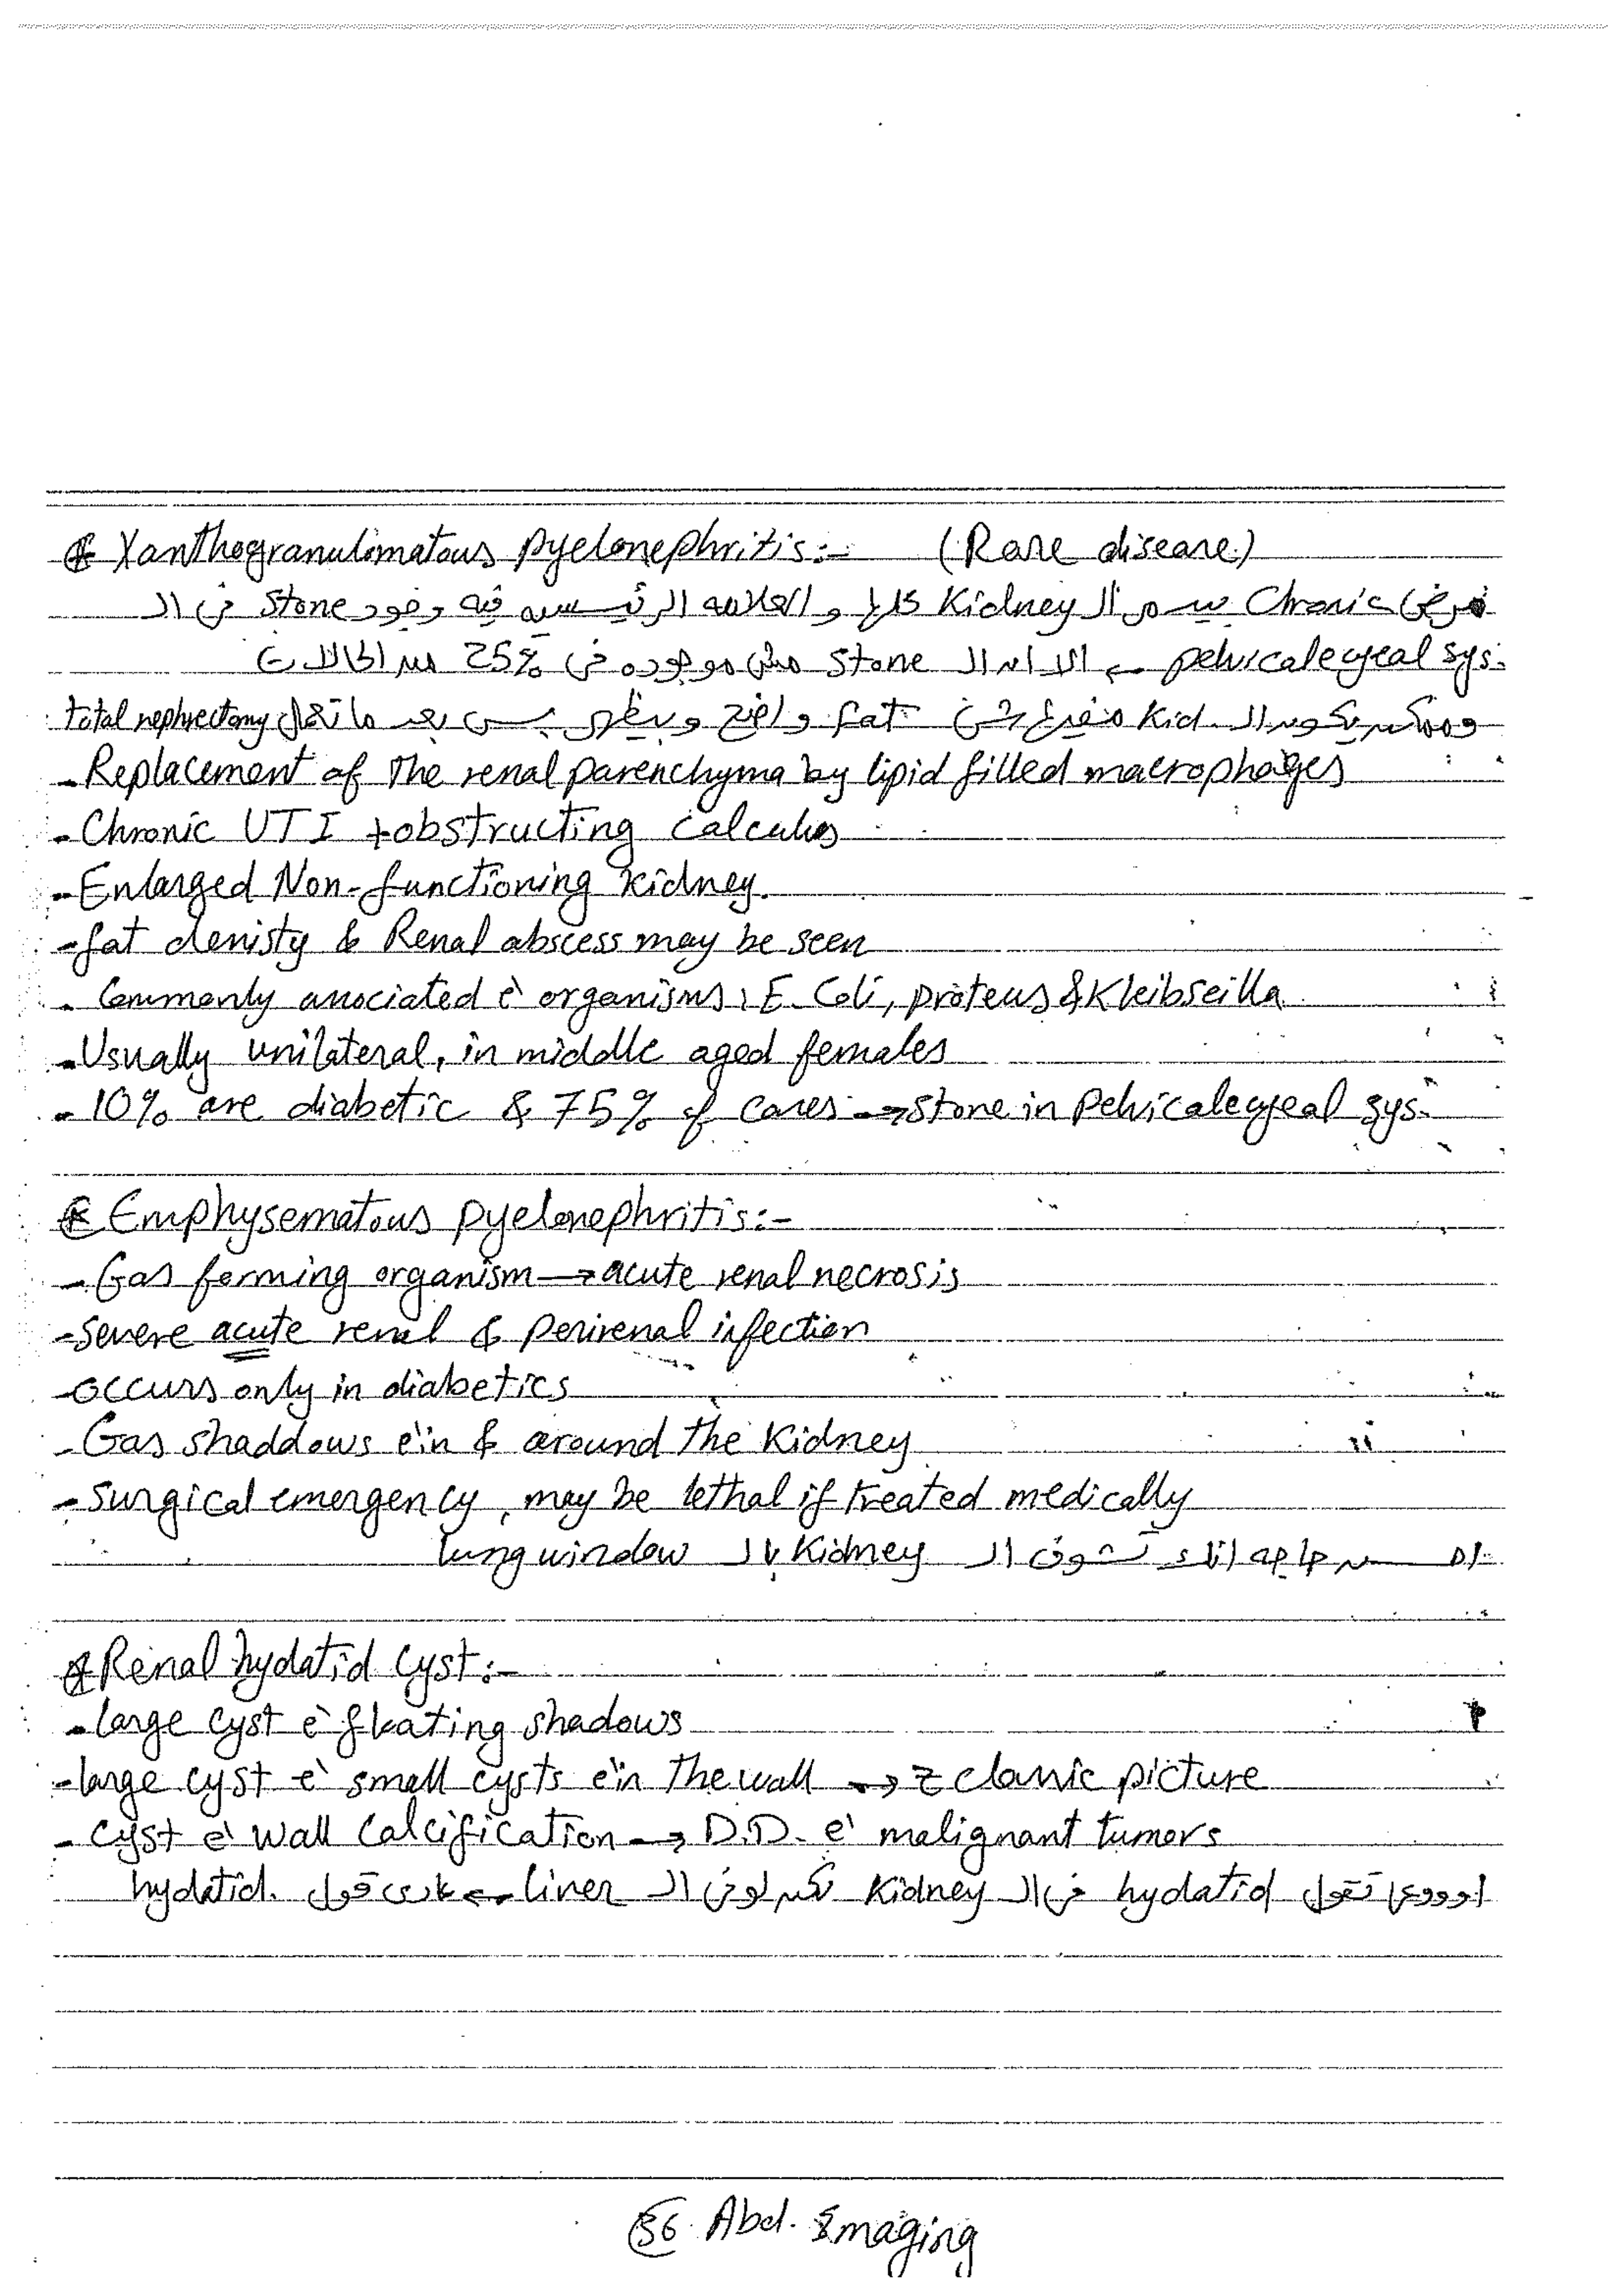 * Xanthogranulomatous pyelonephritis:- (Rare disease)
مرض Chronic بيدمر الـ Kidney كلها و العلامه الرئيسيه فيه وجود stone في الـ
pelvicalcyceal sys. ← الا ان الـ stone مش موجوده في 25% من الحالات
وممكن يكون الـ Kid. مفيهاش fat واضح ويظهر بس بعد ما تعمل total nephrectomy
- Replacement of the renal parenchyma by lipid filled macrophages
- Chronic UTI + obstructing calculus
- Enlarged Non-functioning kidney.
- fat denisty & Renal abscess may be seen
- Commonly associated è organisms: E. Coli, proteus & Kleibseilla
- Usually unilateral, in middle aged females
- 10% are diabetic & 75% of cases → stone in pelvicalcyceal sys.
* Emphysematous pyelonephritis:-
- Gas forming organism → acute renal necrosis
- severe acute renal & perirenal infection
- occurs only in diabetics
- Gas shaddows è'in & around the Kidney
- surgical emergency, may be lethal if treated medically
اهم حاجه انك تشوف الـ Kidney بالـ lung window
* Renal hydatid cyst:-
- large cyst è floating shadows
- large cyst è small cysts è'in the wall → classic picture
- cyst è wall calcification → D.D. è malignant tumors
اوووعى تقول hydatid في الـ Kidney لكن لو في الـ liver ← عادى قول hydatid.
36 Abd. Imaging